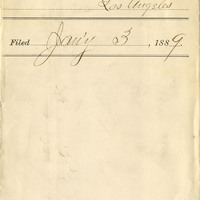 Los Angeles
Filed Jan'y 3, 1889.